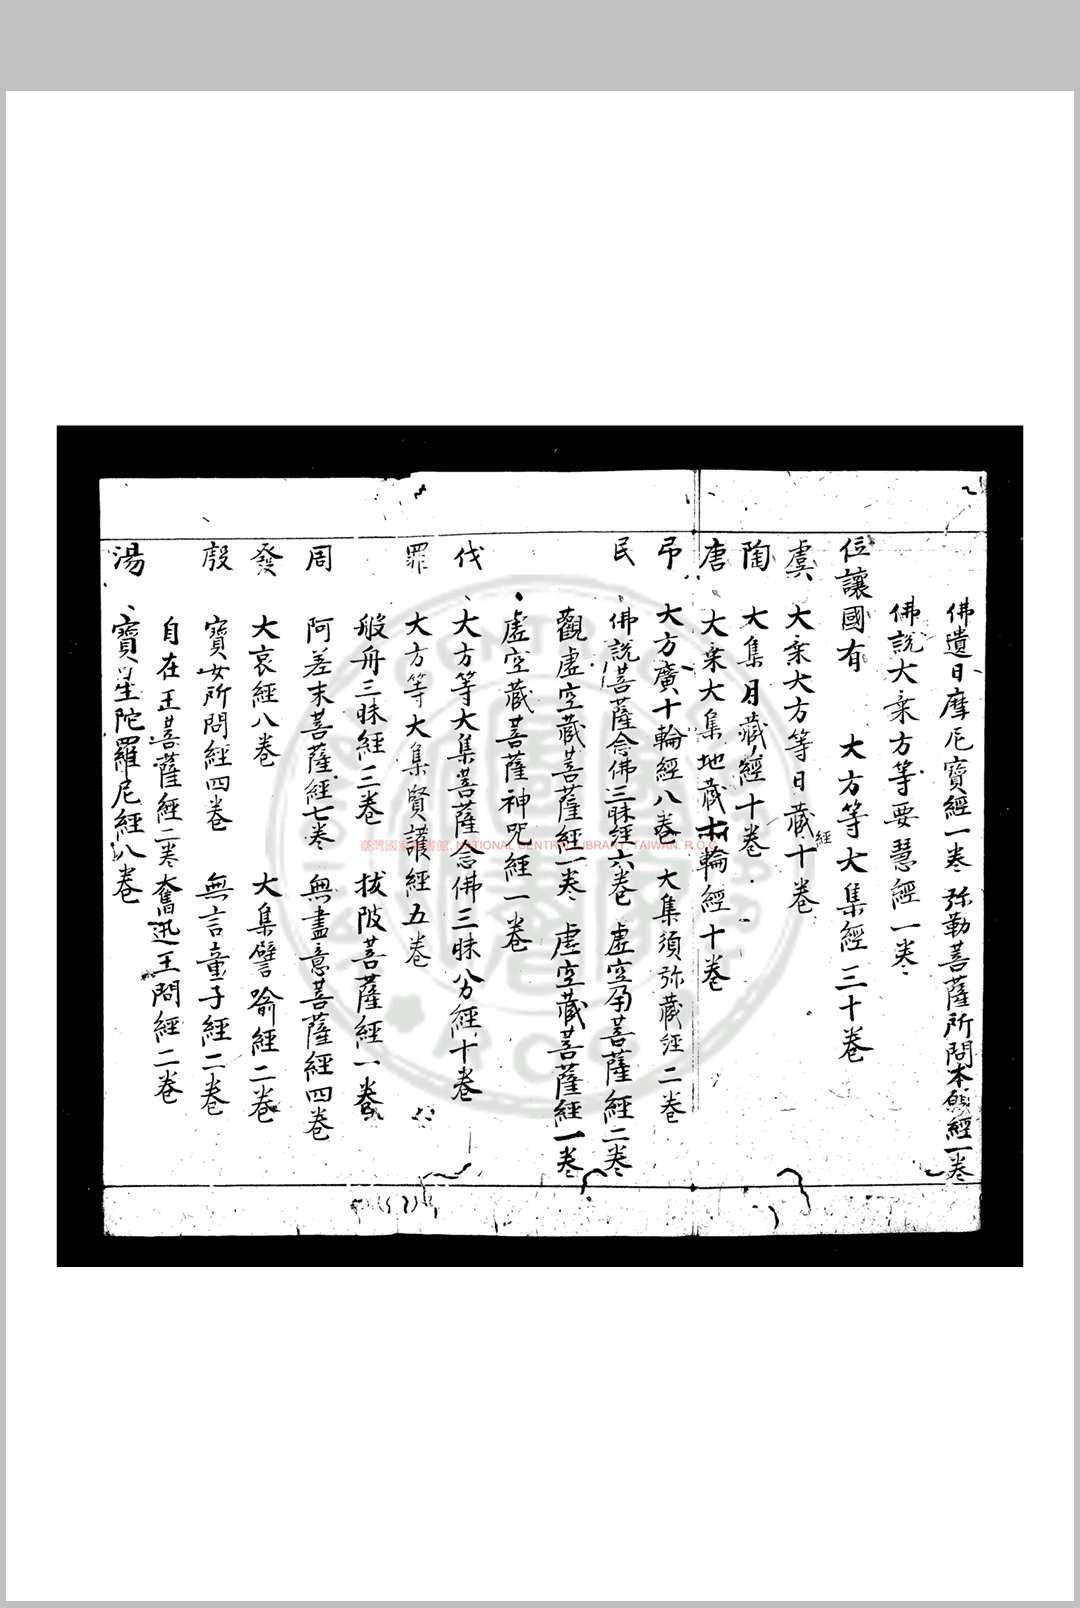 佛遺日摩尼寶經一卷 弥勒菩薩所問本願經一卷
佛說大乗方等要慧經一卷
位讓國有 大方等大集經三十卷
虞 大乗大方等日藏經十卷
陶 大集月藏經十卷
唐 大乗大集地藏十輪經十卷
弔 大方廣十輪經八卷 大集須弥藏經二卷
民 佛說菩薩念佛三昧經六卷 虚空孕菩薩經二卷
觀虚空藏菩薩經一卷 虚空藏菩薩經一卷
虚空藏菩薩神呪經一卷
伐 大方等大集菩薩念佛三昧分經十卷
罪 大方等大集賢護經五卷
般舟三昧經三卷 拔陂菩薩經一卷
周 阿差末菩薩經七卷 無盡意菩薩經四卷
發 大哀經八卷 大集譬喻經二卷
殷 寶女所問經四卷 無言童子經二卷
自在王菩薩經二卷 奮迅王問經二卷
湯 寶星陀羅尼經八卷
臺灣國家圖書館, NATIONAL CENTRAL LIBRARY, TAIWAN, R.O.C.